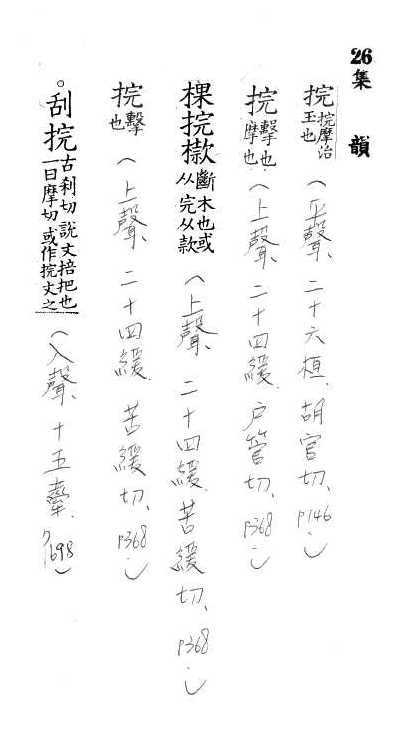 26集韻
捖捖摩治玉也(平聲、二十六桓、胡官切、P146。)
捖擊也摩也(上聲、二十四緩、戶管切、P368。)
棵捖樕斷木也或从完从款(上聲、二十四緩、苦緩切、P368。)
捖擊也(上聲、二十四緩、苦緩切、P368。)
。刮捖古刹切說文掊把也一曰摩切或作捖文之(入聲、十五舝、P698。)